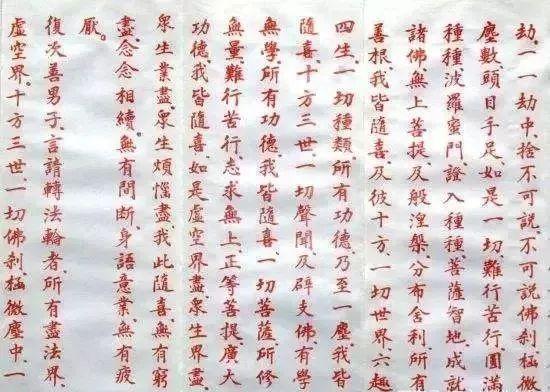 劫、一一劫中、捨不可說不可說佛剎、極微
塵數頭目手足、如是一切難行苦行、圓滿
種種波羅蜜門、證入種種菩薩智地、成
諸佛無上菩提、及般涅槃、分布舍利所有
善根、我皆隨喜、及彼十方、一切世界六趣
四生、一切種類、所有功德、乃至一塵、我皆
隨喜、十方三世、一切聲聞、及辟支佛、有學
無學、所有功德、我皆隨喜、一切菩薩所修
無量、難行苦行、志求無上正等菩提、廣大
功德、我皆隨喜、如是虛空界盡、眾生界盡
眾生業盡、眾生煩惱盡、我此隨喜、無有窮
盡、念念相續、無有間斷、身語意業、無有疲
厭。
復次善男子、言請轉法輪者、所有盡法界、
虛空界、十方三世一切佛剎、極微塵中、一